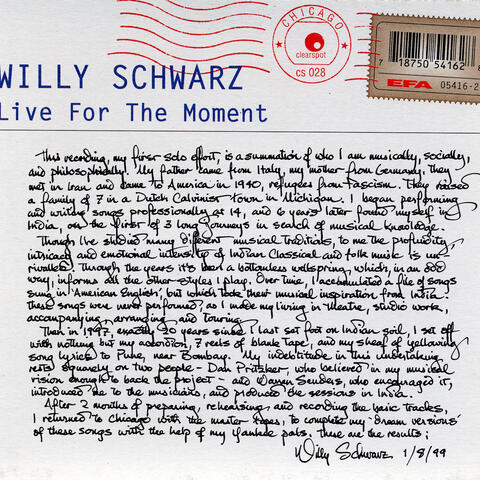 CHICAGO
clearspot
CS 028
7 18750 54162
EFA 05416-2
WILLY SCHWARZ
Live For The Moment
This recording, my first solo effort, is a summation of who I am musically, socially,
and philosophically. My father came from Italy, my mother from Germany, they
met in Iran and came to America in 1940, refugees from Fascism. They raised
a family of 7 in a Dutch Calvinist town in Michigan. I began performing
and writing songs professionally at 14, and 6 years later found myself in
India, on the first of 3 long journeys in search of musical knowledge.
Though I've studied many different musical traditions, to me the profundity,
intricacy and emotional intensity of Indian Classical and folk music is un-
rivalled. Through the years it's been a bottomless wellspring, which, in an odd
way, informs all the other styles I play. Over time, I accumulated a file of songs
sung in 'American English', but which took their musical inspiration from India.
These songs were never performed, as I made my living in theatre, studio work,
accompanying, arranging and touring.
Then in 1997, exactly 20 years since I last set foot on Indian soil, I set off
with nothing but my accordion, 7 reels of blank tape, and my sheaf of yellowing
song lyrics to Pune, near Bombay. My indebtitude in this undertaking
rests squarely on two people - Dan Pritzker, who believed in my musical
vision enough to back the project - and Warren Senders, who encouraged it,
introduced me to the musicians, and produced the sessions in India.
After 2 months of preparing, rehearsing and recording the basic tracks,
I returned to Chicago with the master tapes, to complete my 'dream versions'
of these songs with the help of my Yankee pals. These are the results;
Willy Schwarz 1/8/99